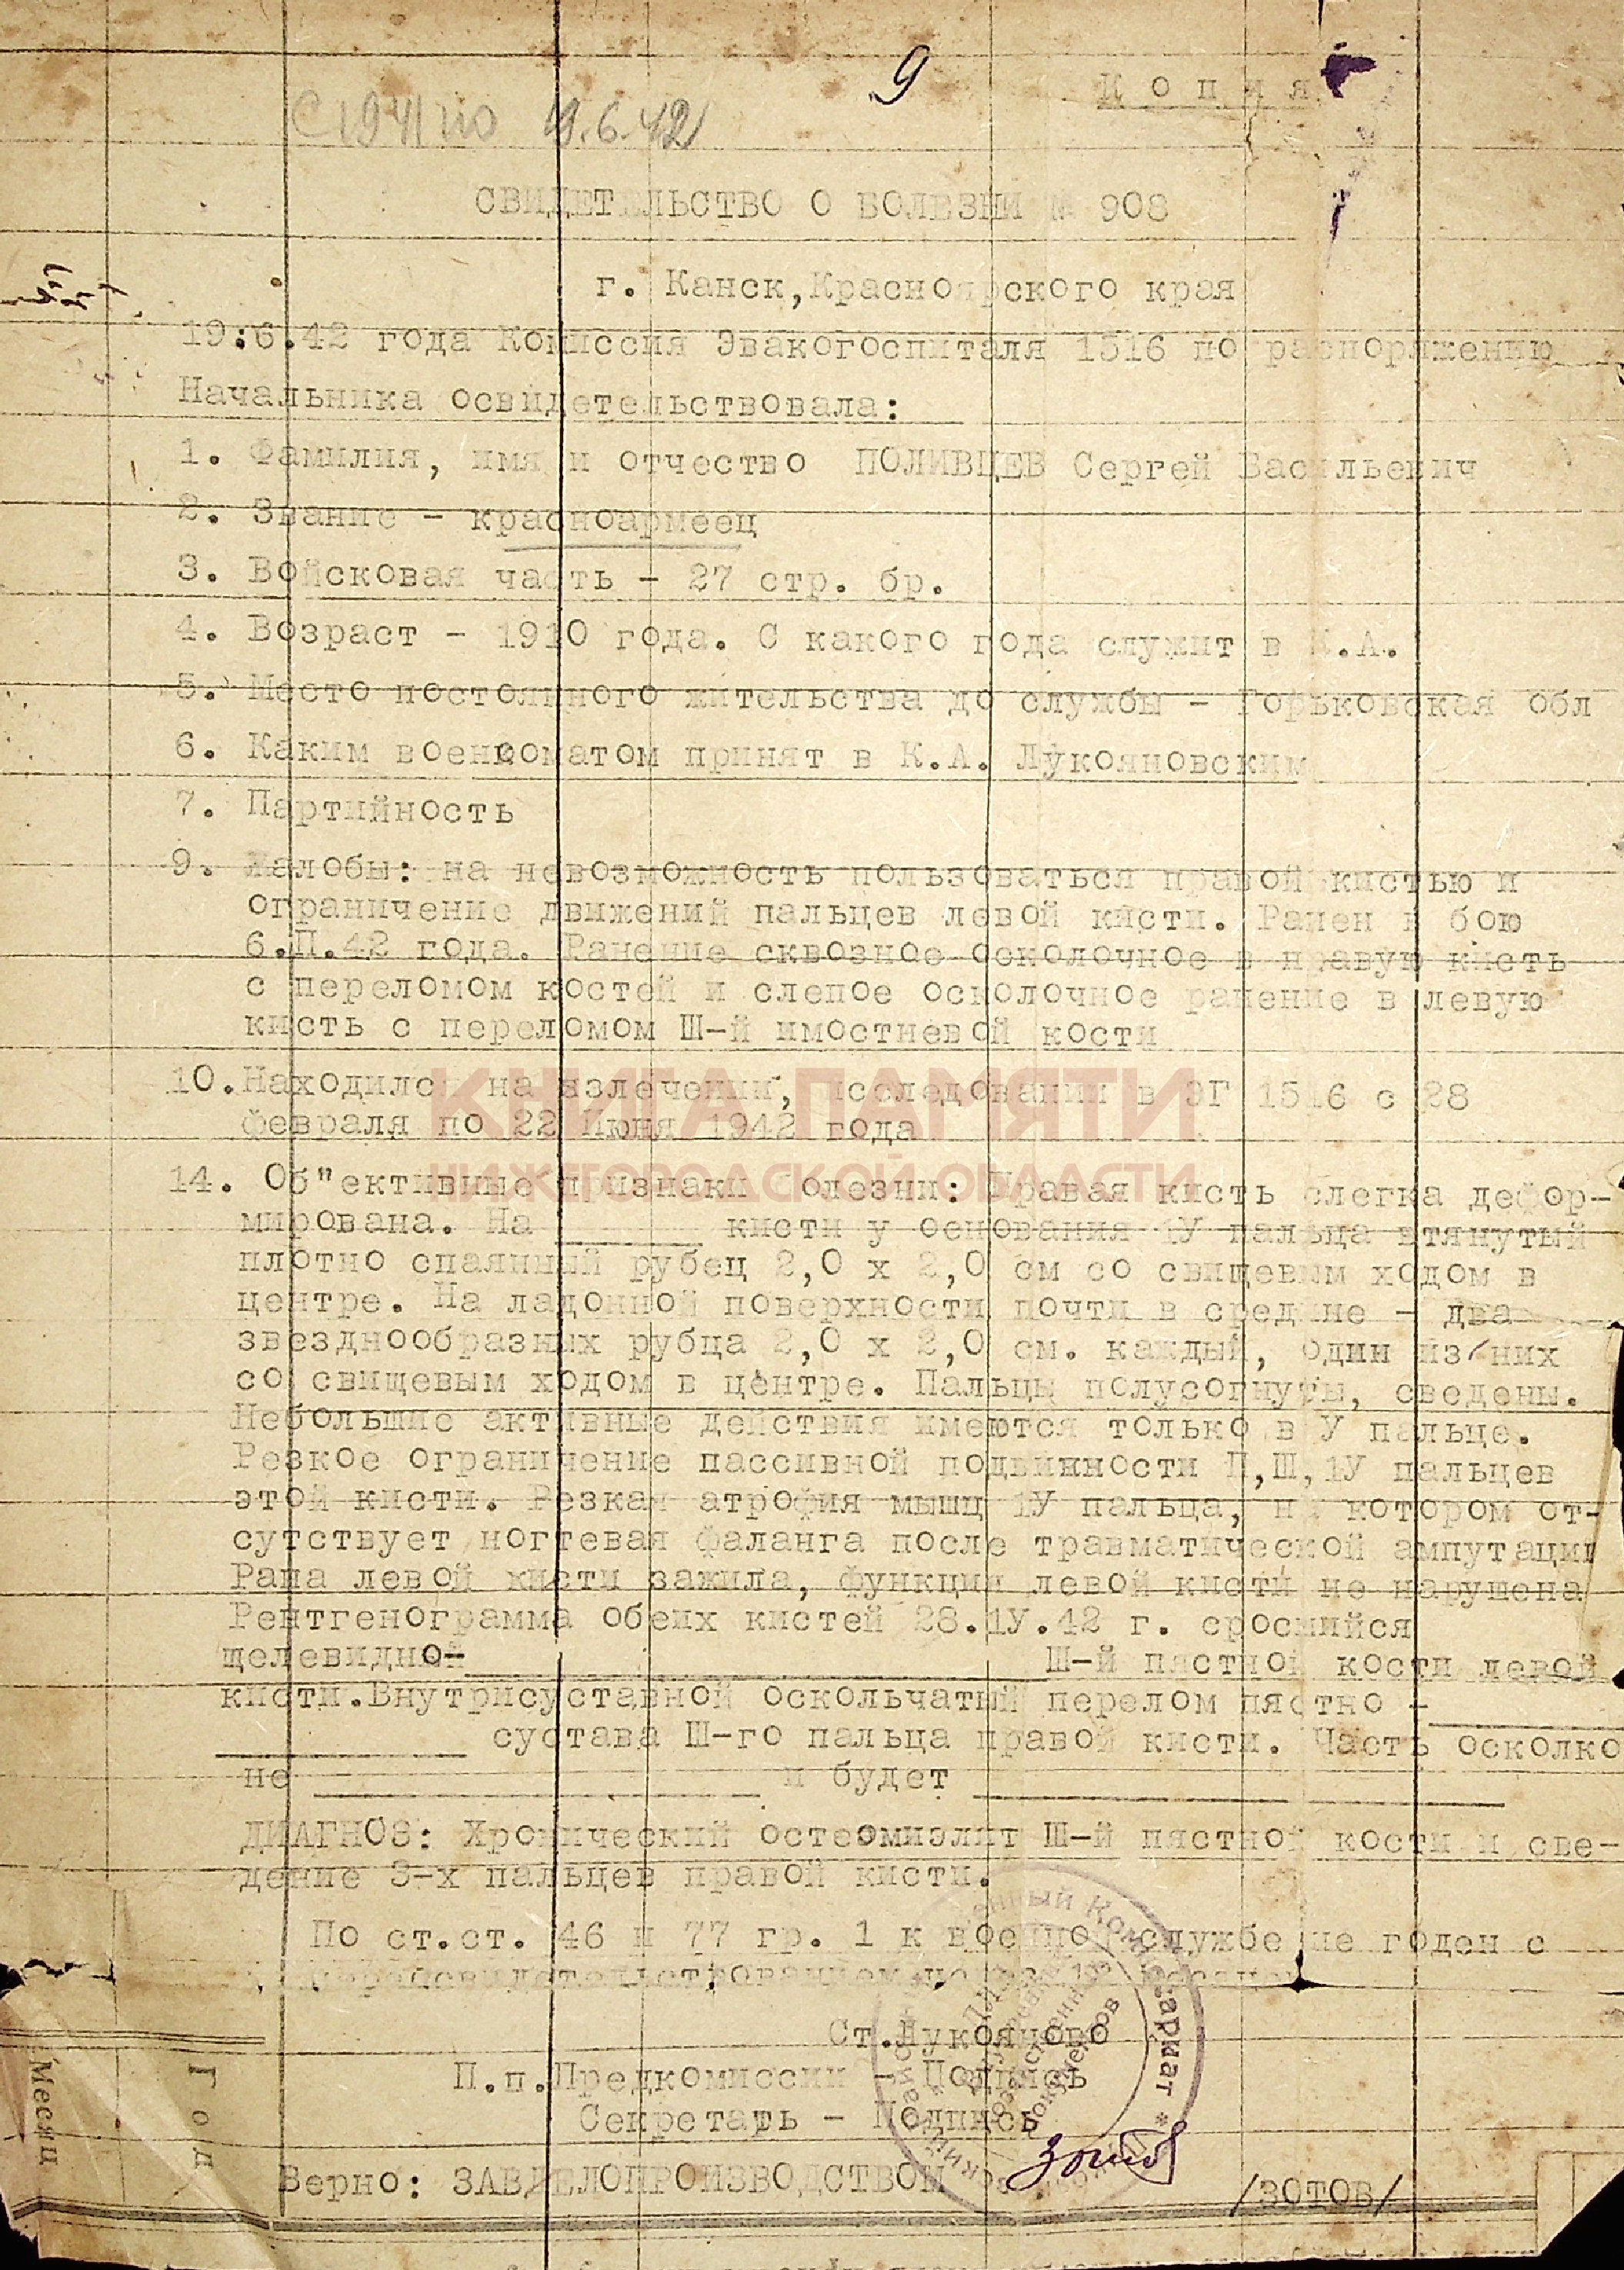 9
Копия
С 1941 по 19.6.42
СВИДЕТЕЛЬСТВО О БОЛЕЗНИ № 908
г. Канск,Красноярского края
19.6.42 года Комиссия Эвакогоспиталя 1516 по распоряжению
Начальника освидетельствовала:
1. Фамилия, имя и отчество ПОЛИВЦЕВ Сергей Васильевич
2. Звание - красноармеец
3. Войсковая часть - 27 стр. бр.
4. Возраст - 1910 года. С какого года служит в К.А.
5. Место постоянного жительства до службы - Горьковская обл
6. Каким военкоматом принят в К.А. Лукояновским
7. Партийность
9. Жалобы: на невозможность пользоваться правой кистью и
ограничение движений пальцев левой кисти. Ранен в бою
6.П.42 года. Ранение сквозное осколочное в правую кисть
с переломом костей и слепое осколочное ранение в левую
кисть с переломом Ш-й имостневой кости
10.Находился на излечении, исследовании в ЭГ 1516 с 28
февраля по 22 Июня 1942 года
КНИГА ПАМЯТИ
НИЖЕГОРОДСКОЙ ОБЛАСТИ
14. Об"ективные признаки болезни: Правая кисть слегка дефор-
мирована. На ______ кисти у основания 1У пальца втянутый
плотно спаянный рубец 2,0 х 2,0 см со свищевым ходом в
центре. На ладонной поверхности почти в средине - два
звезднообразных рубца 2,0 х 2,0 см. каждый, один из них
со свищевым ходом в центре. Пальцы полусогнуты, сведены.
Небольшие активные действия имеются только в У пальце.
Резкое ограничение пассивной подвижности П,Ш,1У пальцев
этой кисти. Резкая атрофия мышц 1У пальца, на котором от-
сутствует ногтевая фаланга после травматической ампутации
Рана левой кисти зажила, функция левой кисти не нарушена
Рентгенограмма обеих кистей 28.1У.42 г. сросшийся
щелевидной ______ Ш-й пястной кости левой
кисти.Внутрисуставной оскольчатый перелом пястно - ______
______ сустава Ш-го пальца правой кисти. Часть осколко
не ______ и будет ______ ______
ДИАГНОЗ: Хронический остеомиэлит Ш-й пястной кости и све-
дение 3-х пальцев правой кисти.
По ст.ст. 46 и 77 гр. 1 к военной службе не годен с
переосвидетельствованием
Ст.Лукояново
П.п.Предкомиссии - Подпись
Секретарь - Подпись
Зотов
Верно: ЗАВДЕЛОПРОИЗВОДСТВОМ /ЗОТОВ/
Комиссариат *
Месяц
Год